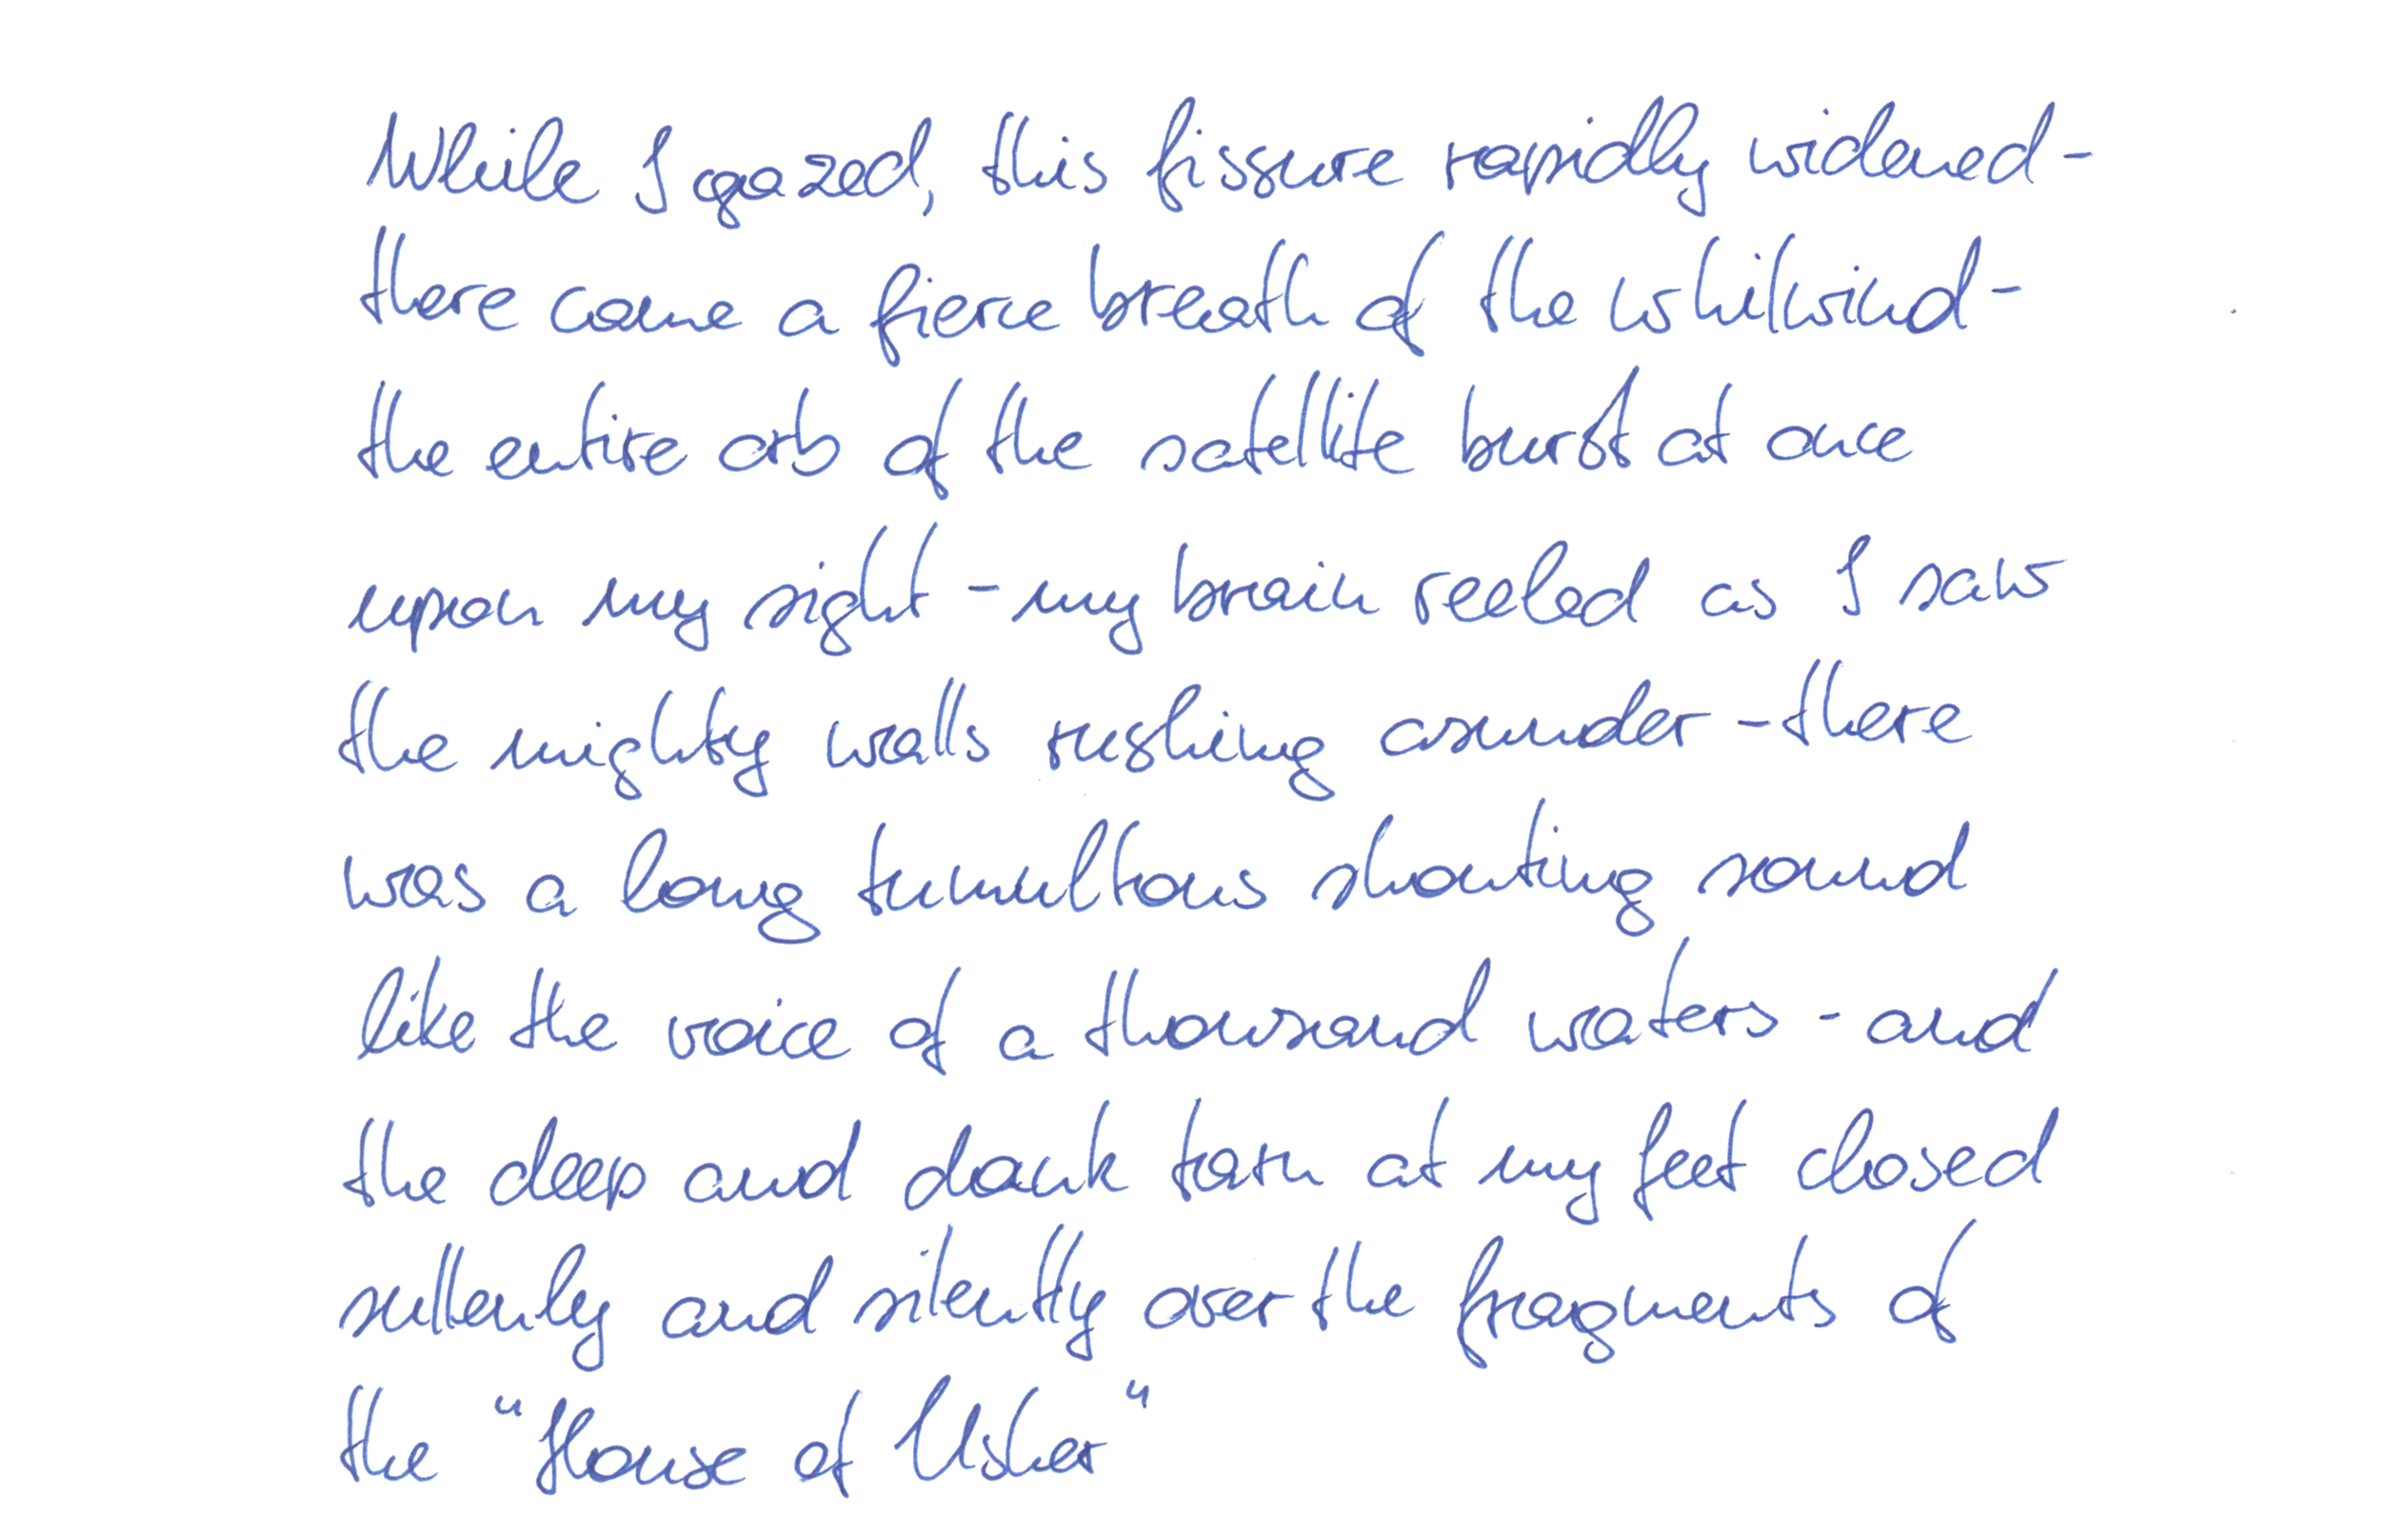 While I gazed, this fissure rapidly widened-
there came a fierce breath of the whilwind-
the entire orb of the satellite burst at once
upon my sight - my brain reeled as I saw
the mighty walls rushing asunder - there
was a long tumultous shouting sound
like the voice of a thousand waters - and
the deep and dank tarn at my feet closed
sullenly and silently over the fragments of
the "House of Usher"